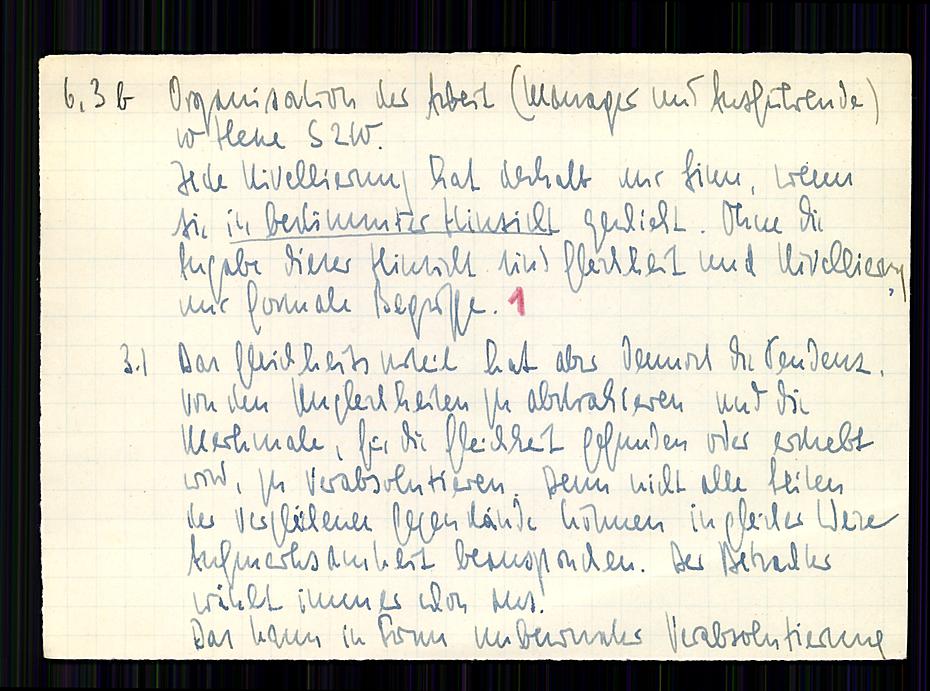 6,3b Organisation der Arbeit (Manager und Ausführende)
S 210.
Jede Nivellierung hat deshalb nur Sinn, wenn
sie in bestimmter Hinsicht geschieht. Ohne die
Angabe dieser Hinsicht sind Gleichheit und Nivellierung
nur formale Begriffe. 1
3.1 Das Gleichheitsurteil hat aber dennoch die Tendenz,
von den Ungleichheiten zu abstrahieren und die
Merkmale, für die Gleichheit gefunden oder erstrebt
wird, zu verabsolutieren. Denn nicht alle Seiten
der verglichenen Gegenstände können in gleicher Weise
Aufmerksamkeit beanspruchen. Der Betrachter
wählt immer schon aus.
Das kann in Form unbewusster Verabsolutierung